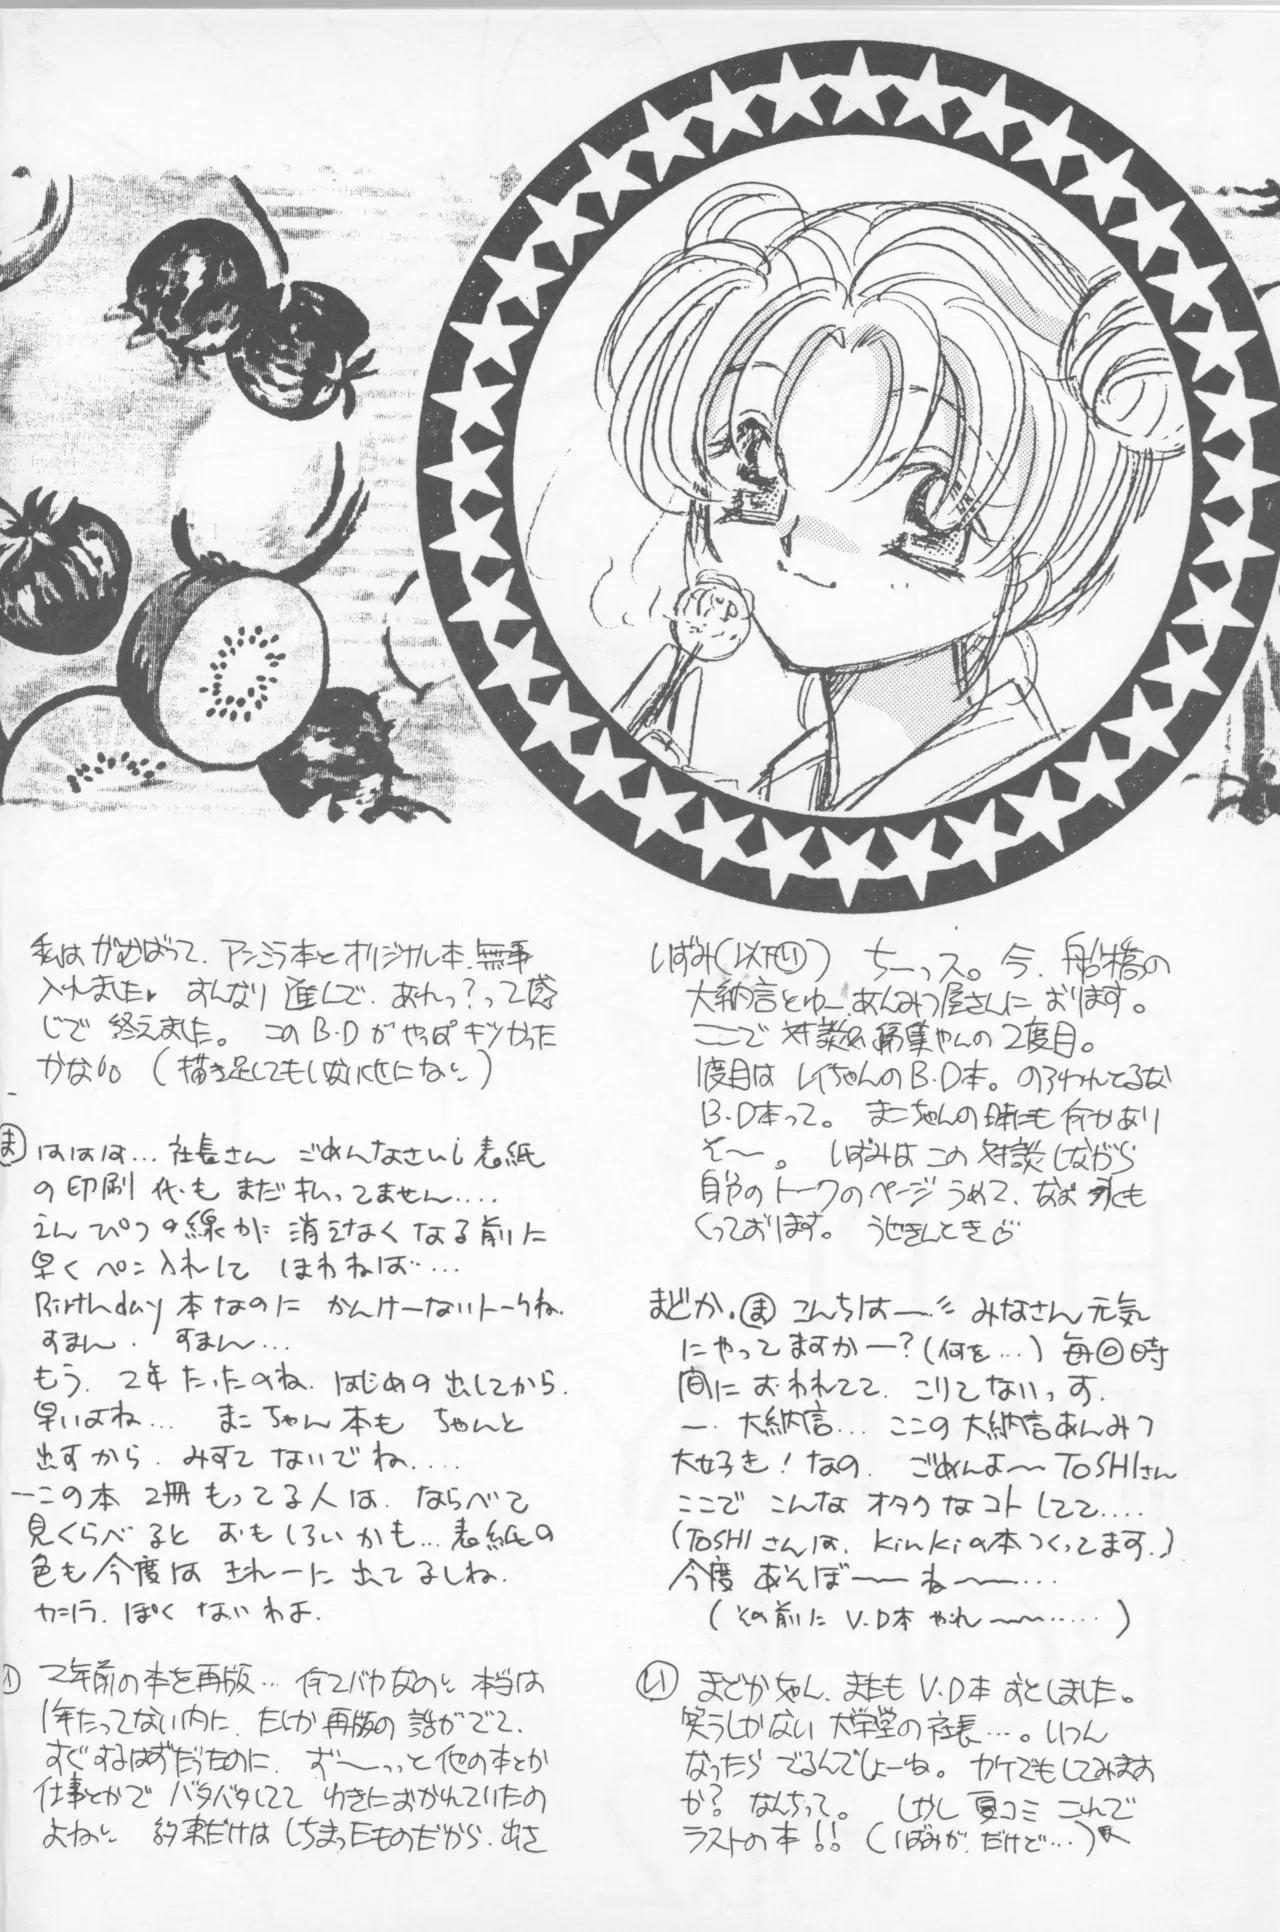 いずみ(以下い) ちーっス。今、船橋の
大納言とゆーあんみつ屋さんにおります。
ここで対談&編集やんの2度目。
1度目はレイちゃんのB・D本。のろわれてるな
B・D本って。まこちゃんの時にも何かあり
そ〜。いずみはこの対談しながら
自分のトークのページうめて、なお
くっております。うせきんとき♡
まどか・ま こんちはー〃 みなさん元気
にやってますかー?(何を…)毎回時
間におわれてて、こりてないっす。
一、大納言… ここの大納言あんみつ
大好き!なの。ごめんよ〜TOSHIさん
ここでこんなオタクなコトしてて....
(TOSHIさんは、Kinkiの本つくってます。)
今度あそぼ〜〜ね〜〜…
(その前にV.D本やれ〜〜……)
い まどかちゃん、またもV.D本おとしました。
笑うしかない大学堂の社長…。いつん
なったらでるんでしょーね。カケでもしてみます
か?なんちって。しかし夏コミこれで
ラストの本!!(いずみが、だけど…)
私はがむばって、アンジェラ本とオリジナル本、無事
入れました♥ すんなり進んで、あれっ?って感
じで終えました。このB・Dがやっぱキツかった
かな。(描き足してもいないくせになー)
ま ははは… 社長さん ごめんなさいし 表紙
の印刷代もまだ払ってません....
えんぴつの線がに消えなくなる前に
早くペン入れしてほわねば……
Birthday本なのにかんけーないトークね.
すまん. すまん…
もう、2年たったのね. はじめの出してから.
早いよね… まこちゃん本もちゃんと
出すから. みすてないでね....
―この本2冊もってる人は、ならべて
見くらべるとおもしろいかも… 表紙の
色も今度はきれーに出てるしね.
カニバラ.ぽくないわよ.
い 2年前の本を再版… 何てバカなのー 本当は
1年たってない内に、たしか再版の話がでて、
すぐするはずだったのに、ず〜っっと他の本とか
仕事とかでバタバタしててわきにおかれていたの
よねー 約束だけはしちまったものだから、出さ